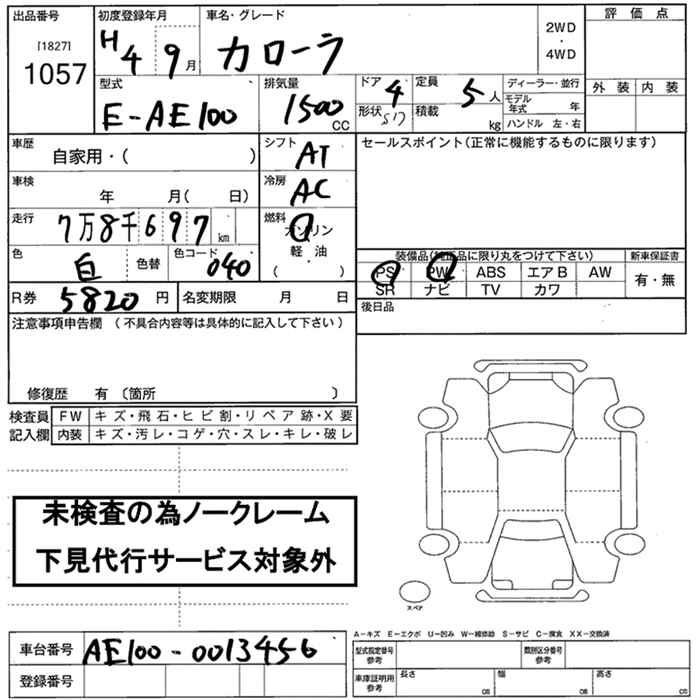 出品番号 初度登録年月 車名・グレード 評価点
[1827] H4 9月 カローラ 2WD・4WD
1057
型式 排気量 ドア 4 定員 5人 ディーラー・並行 外装 内装
E-AE100 1500 CC 形状 積載 kg モデル年式 年
ハンドル 左・右
車歴 シフト セールスポイント(正常に機能するものに限ります)
自家用・( ) AT
車検 冷房
年 月( 日) AC
走行 7万8千697km 燃料 ガソリン
軽油
( )
色 白 色替 色コード 040 装備品(純正品に限り丸をつけて下さい) 新車保証書
PS PW ABS エアB AW 有・無
SR ナビ TV カワ
R券 5820円 名変期限 月 日 後日品
注意事項申告欄 (不具合内容等は具体的に記入して下さい)
修復歴 有 〔箇所 〕
検査員 FW キズ・飛石・ヒビ割・リペア跡・X要
記入欄 内装 キズ・汚レ・コゲ・穴・スレ・キレ・破レ
未検査の為ノークレーム
下見代行サービス対象外
スペア
A-キズ E-エクボ U-凹み W-補修跡 S-サビ C-腐食 XX-交換済
車台番号 AE100-0013456 型式指定番号 参考 類別区分番号 参考
登録番号 車庫証明用 参考 長さ cm 幅 cm 高さ cm